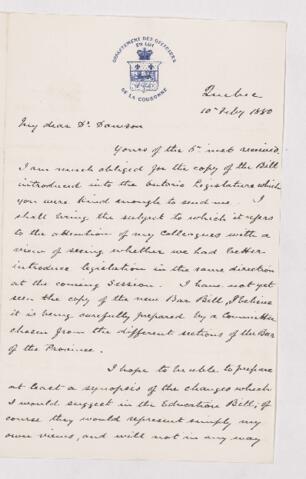 DEPARTEMENT DES OFFICIERS
EN LOI
DE LA COURONNE
Quebec
10 Feby 1880
My dear Dr Dawson
Yours of the 5th inst received.
I am much obliged for the copy of the Bill
introduced into the Ontario Legislature which
you were kind enough to send me. I
shall bring the subject to which it refers
to the attention of my Colleagues with a
view of seeing whether we had better
introduce legislation in the same direction
at the coming Session. I have not yet
seen the copy of the new Bar Bill, I believe
it is being carefully prepared by a Committee
chosen from the different sections of the Bar
of the Province.
I hope to be able to prepare
at least a synopsis of the changes which
I would suggest in the Education Bill; of
course they would represent simply my
own views, and will not in any way